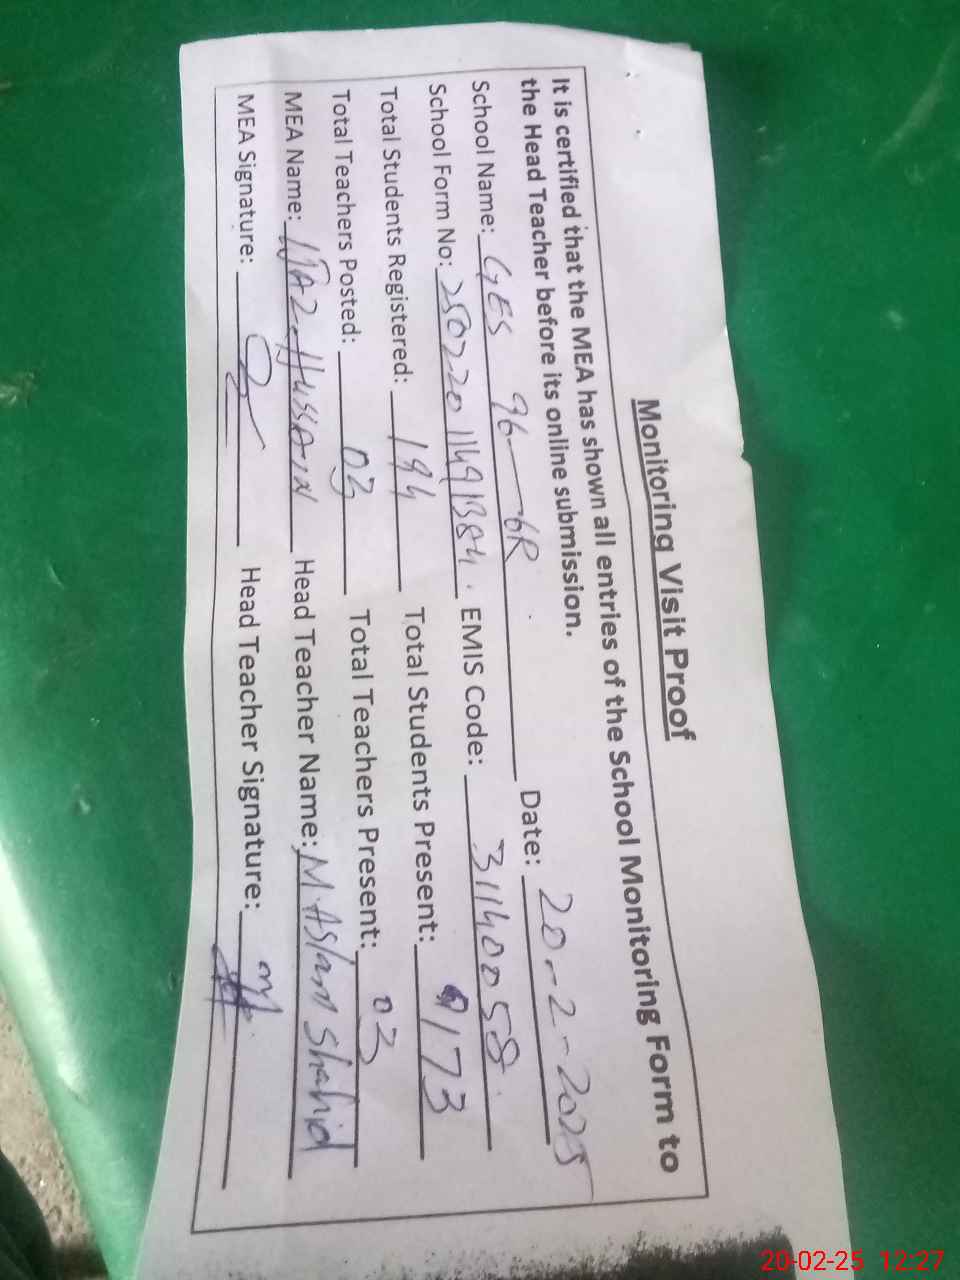 Monitoring Visit Proof
It is certified that the MEA has shown all entries of the School Monitoring Form to
the Head Teacher before its online submission.
School Name: GES 96-6R Date: 20-2-2025
School Form No: EMIS Code: 31140058
Total Students Registered: 194 Total Students Present: 173
Total Teachers Posted: 03 Total Teachers Present: 03
MEA Name: Hussain Head Teacher Name: M. Aslam Shahid
MEA Signature: Head Teacher Signature:
20-02-25 12:27